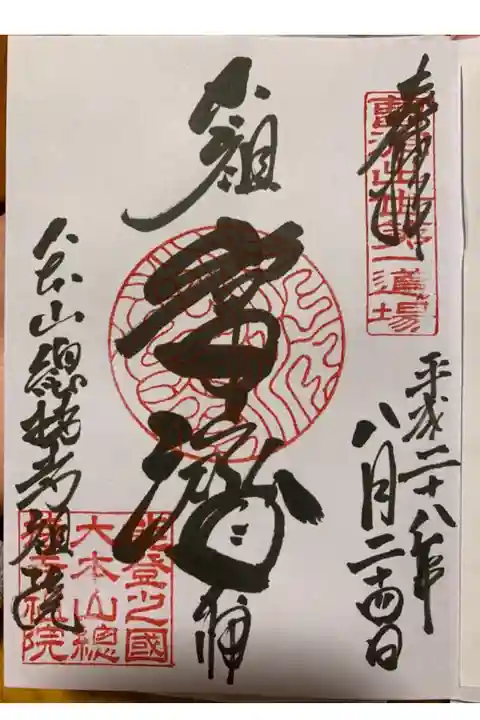 奉拝
曹洞出世第一道場
平成二十八年
八月二十四日
太祖
常濟大師
大本山總持寺祖院
能登之國
大本山總
持寺祖院